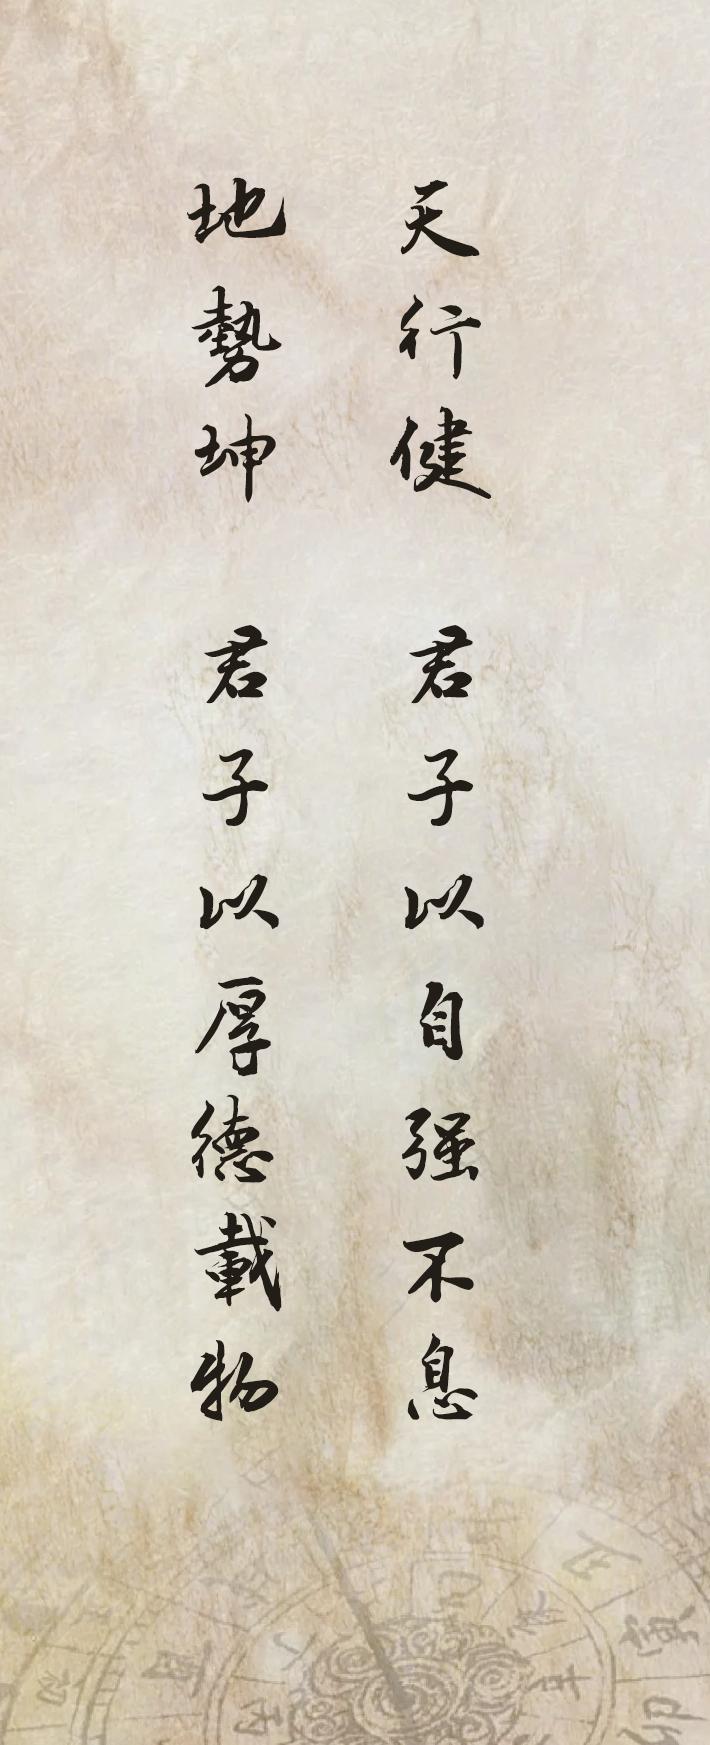 天行健 君子以自强不息
地勢坤 君子以厚德載物